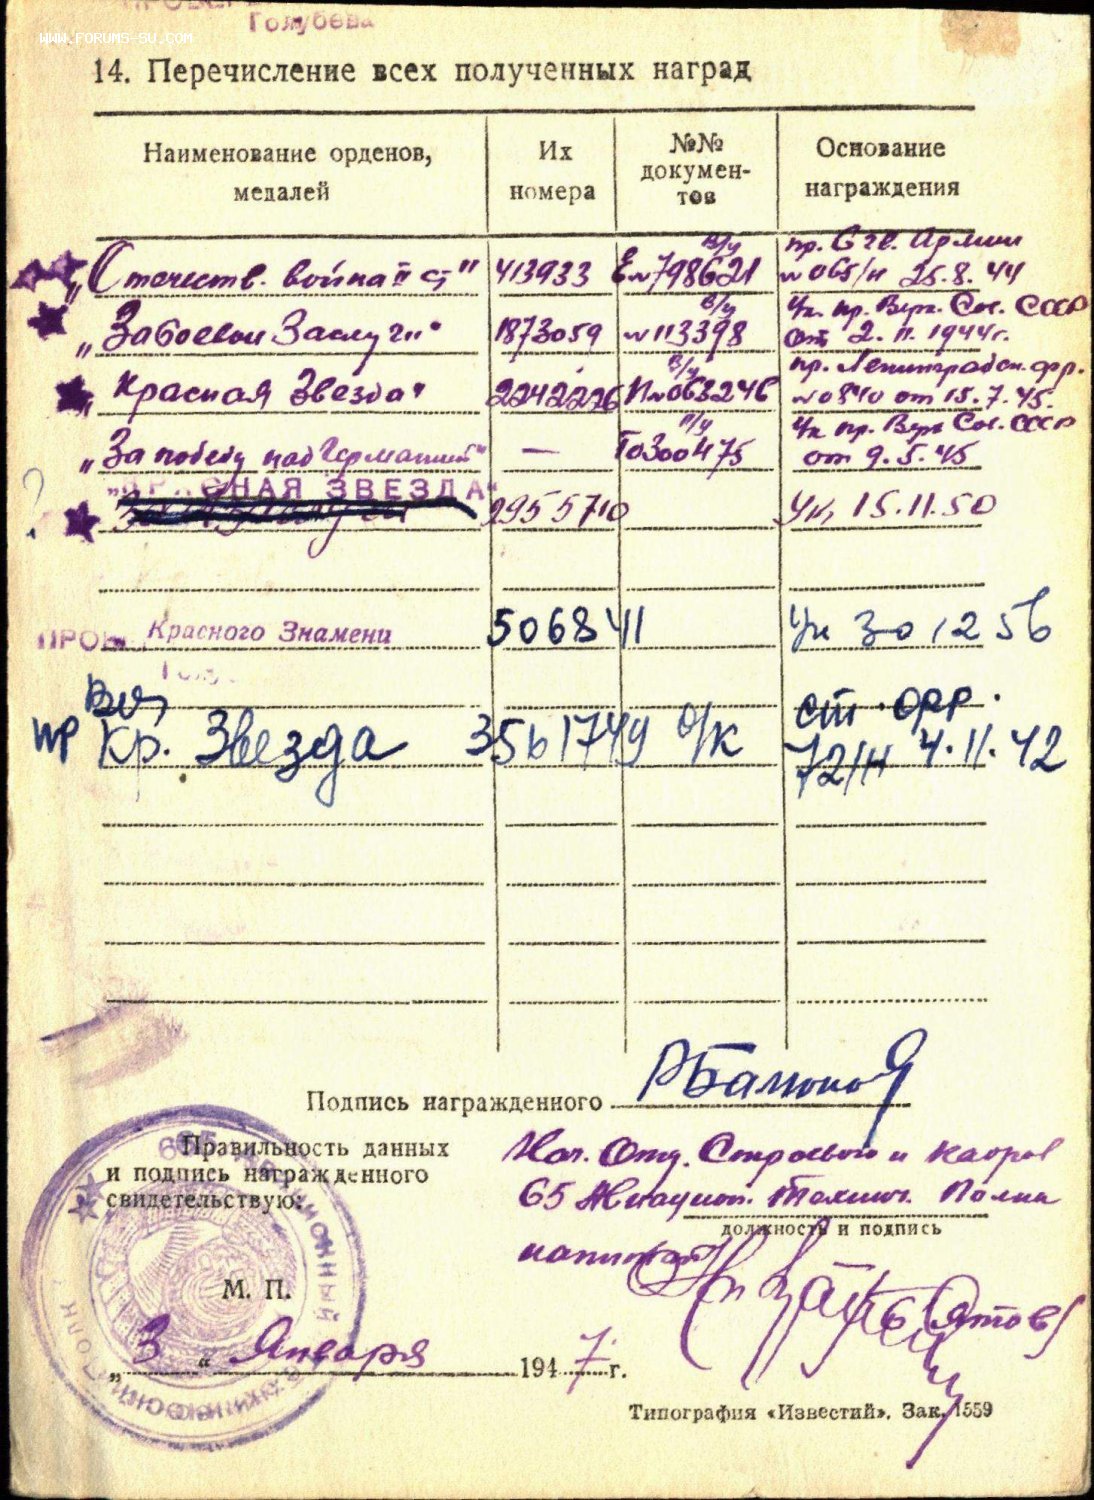 ПРОВЕРЕ
Голубева
WWW.FORUMS-SU.COM
14. Перечисление всех полученных наград
Наименование орденов, медалей
Их номера
№№ документов
Основание награждения
„Отечеств. война II ст" 413933 в/у Е №798621 пр. 6 гв. Армии №065/н 25.8.44
„За боевые Заслуги" 1873059 в/у №113398 Ук. пр. Верх. Сов. СССР от 2.11.1944г.
„Красная Звезда" 2242226 в/у И №063246 пр. Ленинградск. фр. №0840 от 15.7.45.
„За победу над Германией" — п/у Г0300475 Ук пр. Верх Сов. СССР от 9.5.45
? „КРАСНАЯ ЗВЕЗДА" 2955710 Ук, 15.11.50
ПРОВ Красного Знамени 506841 Ук 30 12 56
пр Кр. Звезда 3561749 о/к ст. фр. 72/н 4.11.42
Подпись награжденного
Правильность данных
и подпись награжденного
свидетельствую:
Нач. Отд. Строевого и кадров
65 Авиацион. Технич. Полка
должность и подпись
капитан
М. П.
„ 3 “ Января 1947 г.
Типография «Известий». Зак. 1559